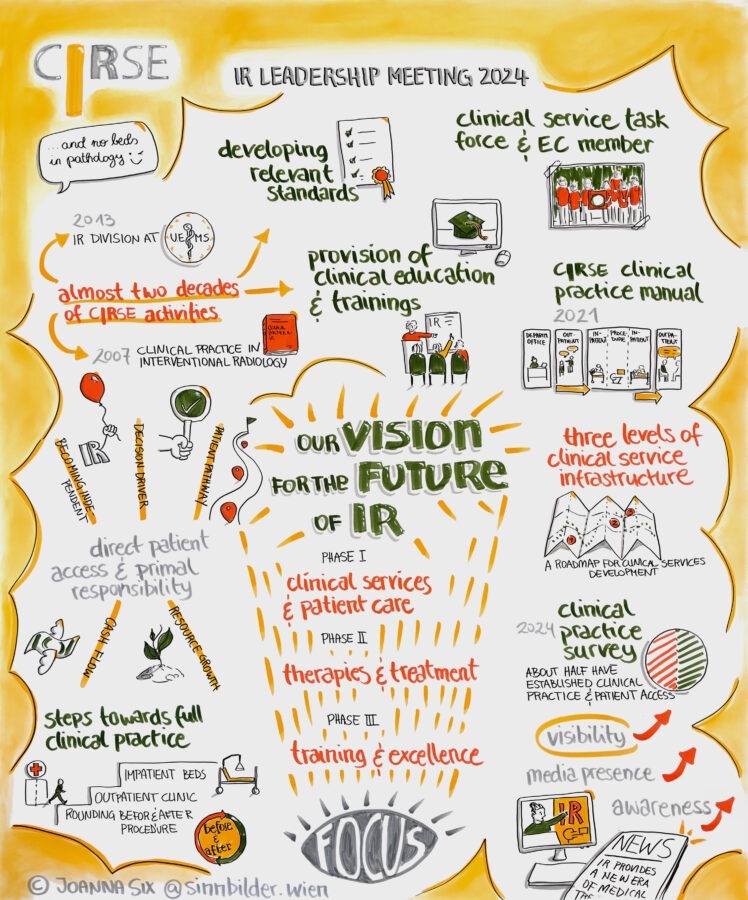 CIRSE
IR LEADERSHIP MEETING 2024
...and no beds
in pathology
developing
relevant
standards
clinical service task
force & EC member
2013
IR DIVISION AT UEMS
almost two decades
of CIRSE activities
2007 CLINICAL PRACTICE IN
INTERVENTIONAL RADIOLOGY
provision of
clinical education
& trainings
IR
CIRSE clinical
practice manual
2021
OFFICE
OUT-
PATIENT
IN-
PATIENT
PROCE-
DURE
IN-
PATIENT
OUTPA-
TIENT
OUR VISION
FOR THE FUTURE
OF IR
PHASE I
clinical services
& patient care
PHASE II
therapies & treatment
PHASE III
training & excellence
FOCUS
IR
BECOMING INDE
PENDENT
DECISION DRIVER
PATIENT PATHWAY
direct patient
access & primal
responsibility
CASH FLOW
RESOURCE GROWTH
steps towards full
clinical practice
IMPATIENT BEDS
OUTPATIENT CLINIC
ROUNDING BEFORE & AFTER
PROCEDURE
before
&
after
three levels of
clinical service
infrastructure
1
2
3
A ROADMAP FOR CLINICAL SERVICES
DEVELOPMENT
2024 clinical
practice
survey
ABOUT HALF HAVE
ESTABLISHED CLINICAL
PRACTICE & PATIENT ACCESS
visibility
media presence
awareness
IR
NEWS
IR PROVIDES
A NEW ERA
OF MEDICAL
© JOANNA SIX @sinnbilder.wien